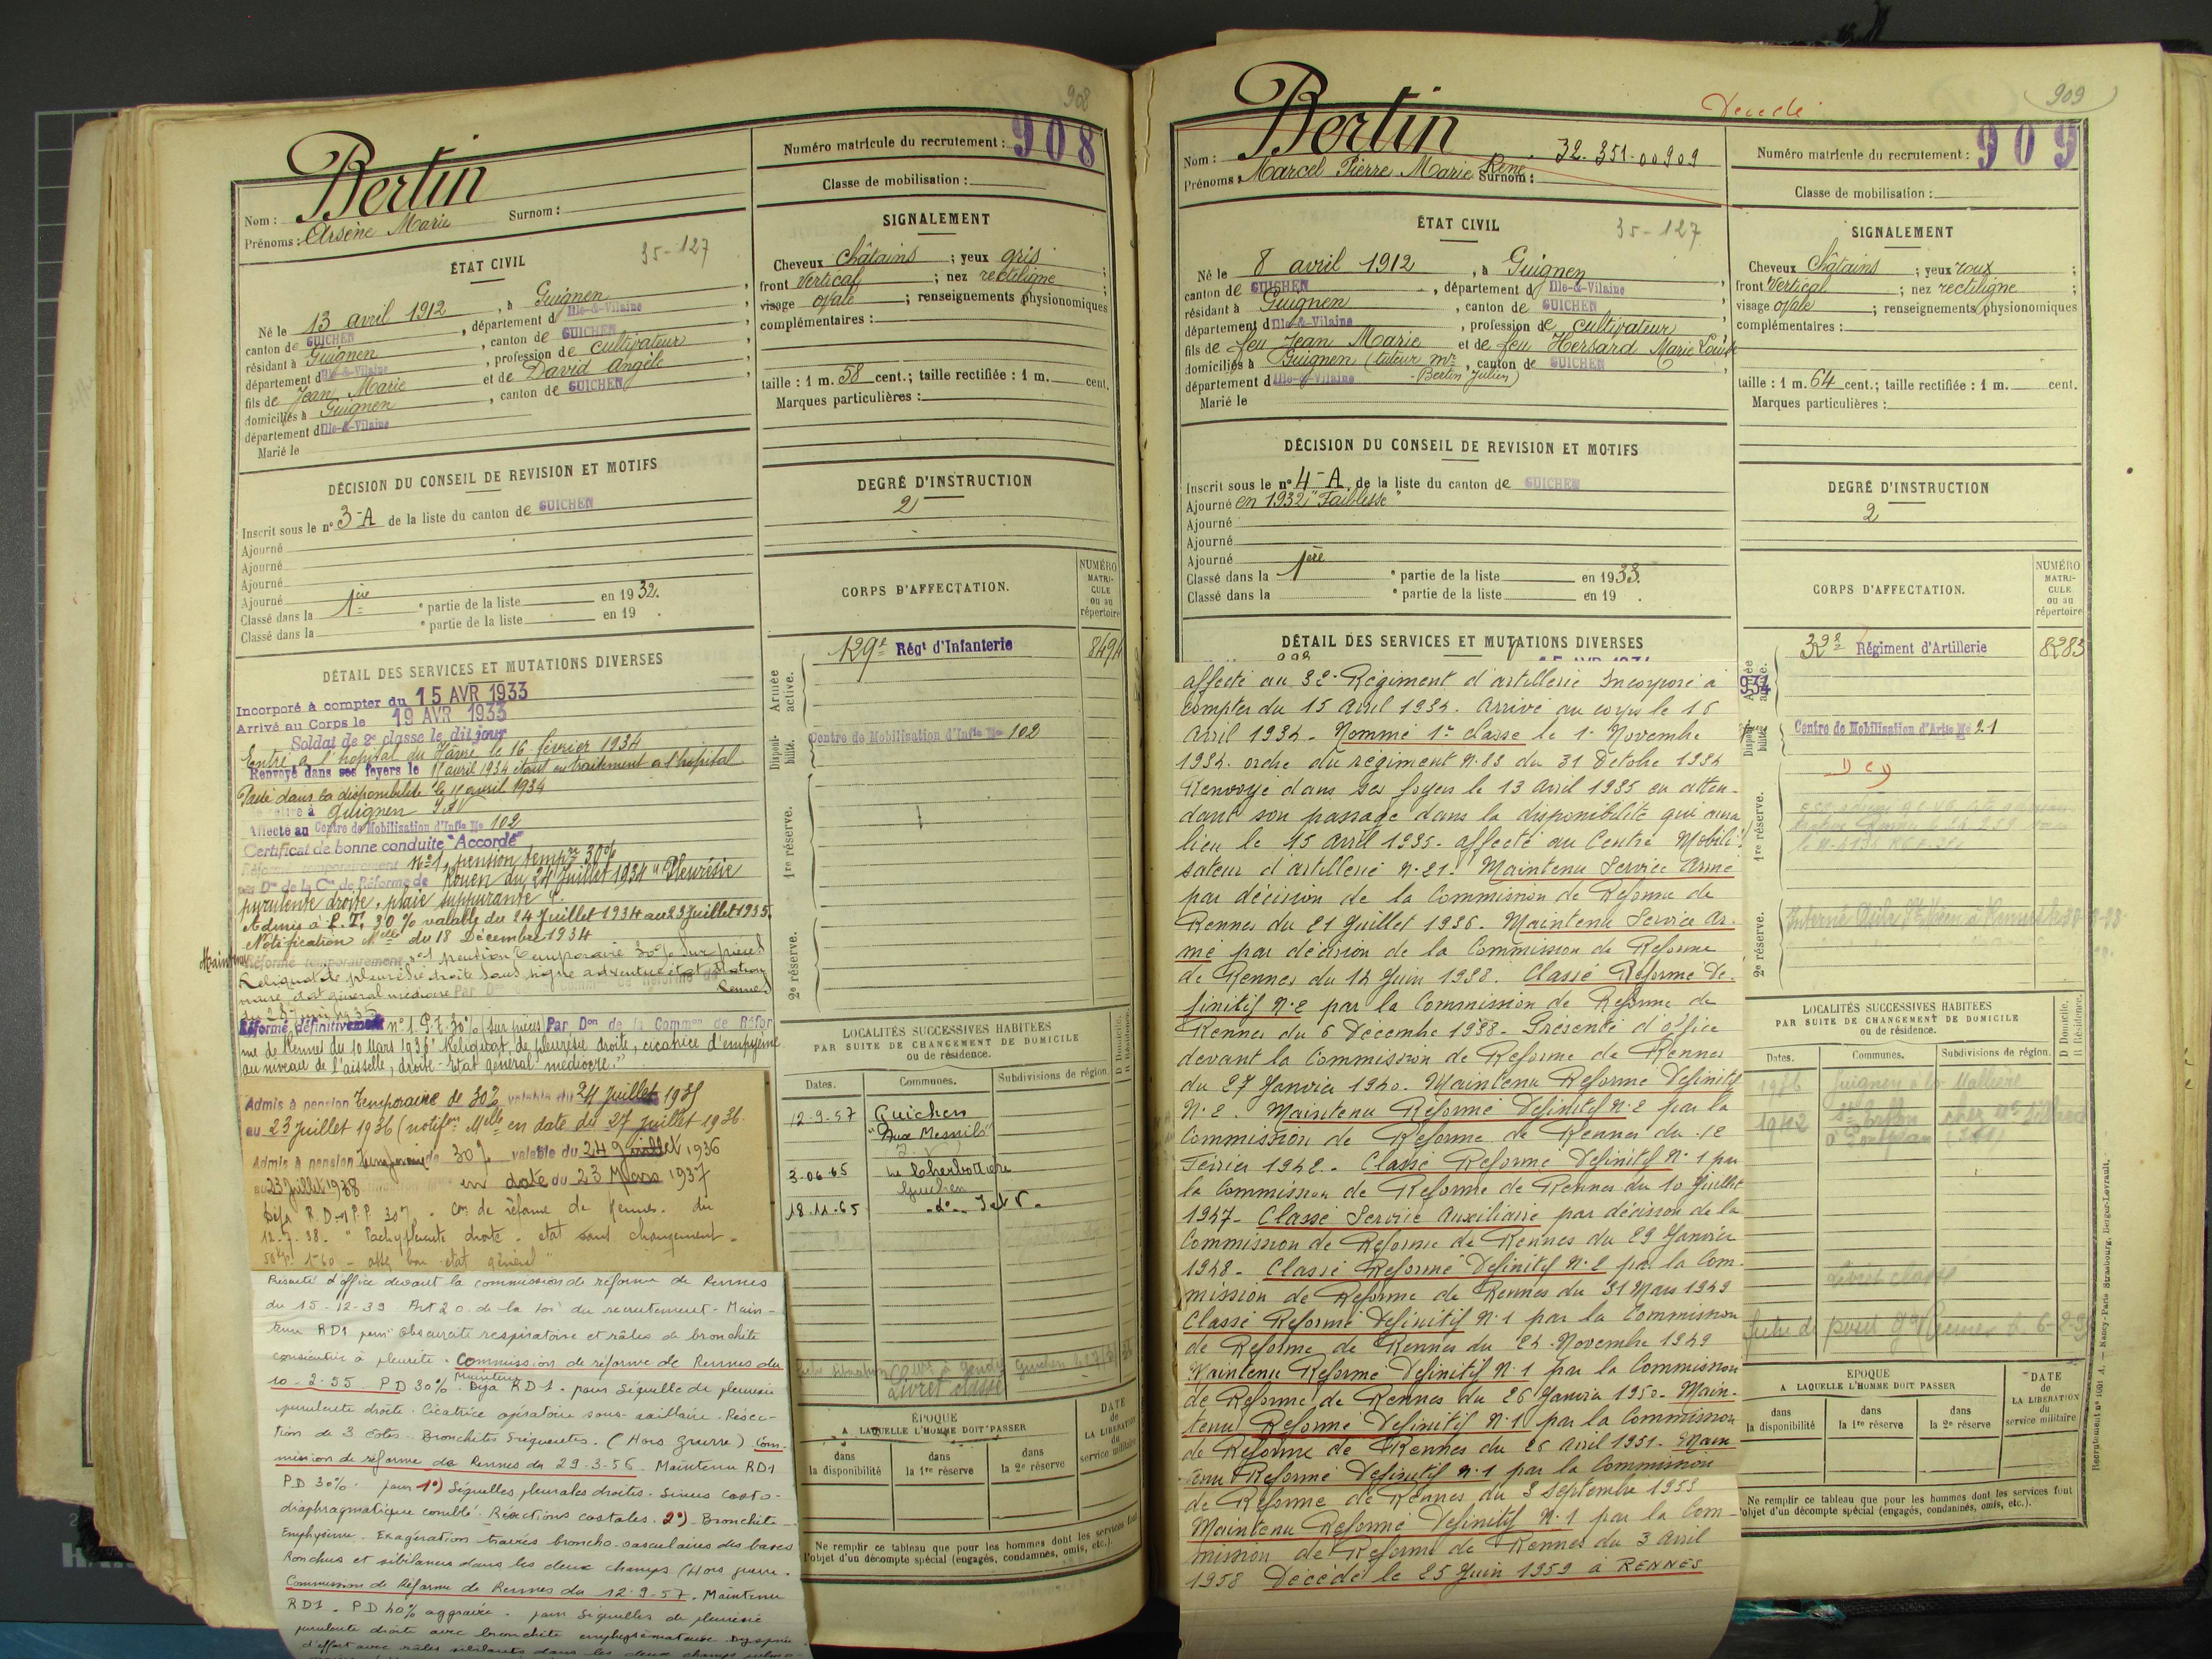 908
Bertin
Nom :
Prénoms : Arsène Marie Surnom :
Numéro matricule du recrutement : 908
Classe de mobilisation :
ÉTAT CIVIL
35-127
Né le 13 avril 1912, à Guignen,
canton de GUICHEN, département d Ille-&-Vilaine,
résidant à Guignen, canton de GUICHEN,
département d Ille-&-Vilaine, profession de cultivateur,
fils de Jean Marie et de David Angèle
domiciliés à Guignen, canton de GUICHEN,
département d Ille-&-Vilaine
Marié le
SIGNALEMENT
Cheveux châtains ; yeux gris ;
front vertical ; nez rectiligne ;
visage ovale ; renseignements physionomiques
complémentaires :
taille : 1 m. 58 cent.; taille rectifiée : 1 m. cent.
Marques particulières :
DÉCISION DU CONSEIL DE REVISION ET MOTIFS
Inscrit sous le n° 3-A de la liste du canton de GUICHEN
Ajourné
Ajourné
Ajourné
Ajourné
Classé dans la 1ère e partie de la liste en 1932.
Classé dans la e partie de la liste en 19 .
DEGRÉ D'INSTRUCTION
2
DÉTAIL DES SERVICES ET MUTATIONS DIVERSES
Incorporé à compter du 15 AVR 1933
Arrivé au Corps le 19 AVR 1933
Soldat de 2e classe le dit jour
Entré à l'hôpital du Hâvre le 16 février 1934
Renvoyé dans ses foyers le 11 avril 1934 étant en traitement à l'hôpital
Passé dans la disponibilité le avril 1934
Se retire à Guignen I&V
Affecté au Centre de Mobilisation d'Infie No 102
Certificat de bonne conduite "Accordé"
Réformé temporairement no 1, pension tempre 30%
par Don de la Con de Réforme de Rouen du 24 Juillet 1934 "Pleurésie
purulente droite, plaie suppurante".
Admis à P.T. 30 % valable du 24 Juillet 1934 au 23 Juillet 1935.
Notification Melle du 18 Décembre 1934
Maintenu Réformé temporairement no 1 pension temporaire 30% sur pièces
Reliquat de pleurésie droite sans signe adventice état station
naire, état général médiocre Par Don de la Common de Réforme de Rennes
Réformé définitivement no 1. P.T. 30% (sur pièces) Par Don de la Common de Réfor
me de Rennes du 10 Mars 1936 "Reliquat de pleurésie droite, cicatrice d'empyème
au niveau de l'aisselle, droite - état général médiocre."
Admis à pension temporaire de 30% valable du 24 Juillet 1935
au 23 Juillet 1936 (notifon Melle en date du 27 Juillet 1936.
Admis à pension temporaire de 30% valable du 24 Juillet 1936
au 23 Juillet 1938 en date du 23 Mars 1937
Déjà R.D. no1 P.P. 30% . Con de réforme de Rennes du
12.7.38. "Pachypleurite droite - état sans changement -
1m60 - assez bon état général"
Présenté d'office devant la commission de réforme de Rennes
du 15-12-39 Art 20 de la loi du recrutement - Main-
tenu RD1 pour obscurité respiratoire et râles de bronchite
consécutive à pleurite. Commission de réforme de Rennes du
10-2-55 PD 30% Maintenu Déjà RD1. pour séquelle de pleurésie
purulente droite. Cicatrice opératoire sous-axillaire. Résec-
tion de 3 côtes. Bronchites fréquentes. (Hors guerre) Com-
mission de réforme de Rennes du 29-3-56 Maintenu RD1
PD 30% pour 1°) Séquelles pleurales droites. Sinus costo-
diaphragmatique comblé. Réactions costales. 2°) Bronchite
Emphysème. Exagération travées broncho-vasculaires des bases
Ronchus et sibilances dans les deux champs (Hors guerre.
Commission de Réforme de Rennes du 12-9-57. Maintenu
RD1. PD 40% aggravée. pour séquelles de pleurésie
purulente droite avec bronchite emphysémateuse. Dyspnée
d'effort avec râles sibilants dans les deux champs pulmo-
CORPS D'AFFECTATION.
NUMÉRO MATRI-CULE ou au répertoire
Armée active.
129e Régt d'Infanterie
Disponi-bilité.
Centre de Mobilisation d'Infie No 102
1re réserve.
2e réserve.
LOCALITÉS SUCCESSIVES HABITÉES
PAR SUITE DE CHANGEMENT DE DOMICILE
ou de résidence.
D Domicile. R Résidence.
Dates. Communes. Subdivisions de région.
12-9-57 Guichen
"Aux Mesnils"
3-06-65 La Cherbotière
Guichen
18-11-65 -d°- I&V.
Livret classé
ÉPOQUE
A LAQUELLE L'HOMME DOIT PASSER
dans la disponibilité
dans la 1re réserve
dans la 2e réserve
DATE de LA LIBÉRATION du service militaire
Ne remplir ce tableau que pour les hommes dont les services font
l'objet d'un décompte spécial (engagés, condamnés, omis, etc.).
909
Décédé
Bertin
Nom : 32-351-00909
Prénoms : Marcel Pierre Marie René Surnom :
Numéro matricule du recrutement : 909
Classe de mobilisation :
ÉTAT CIVIL
35-127
Né le 8 avril 1912, à Guignen,
canton de GUICHEN, département d Ille-&-Vilaine,
résidant à Guignen, canton de GUICHEN,
département d Ille-&-Vilaine, profession de cultivateur
fils de feu Jean Marie et de feu Hersard Marie Louise
domiciliés à Guignen (tuteur mr, canton de GUICHEN
département d Ille-&-Vilaine - Bertin Julien)
Marié le
SIGNALEMENT
Cheveux châtains ; yeux roux ;
front vertical ; nez rectiligne ;
visage ovale ; renseignements physionomiques
complémentaires :
taille : 1 m. 64 cent.; taille rectifiée : 1 m. cent.
Marques particulières :
DÉCISION DU CONSEIL DE REVISION ET MOTIFS
Inscrit sous le n° 4-A de la liste du canton de GUICHEN
Ajourné en 1932 "Faiblesse"
Ajourné
Ajourné
Ajourné
Classé dans la 1ère e partie de la liste en 1933.
Classé dans la e partie de la liste en 19 .
DEGRÉ D'INSTRUCTION
2
DÉTAIL DES SERVICES ET MUTATIONS DIVERSES
affecté au 32e Régiment d'artillerie Incorporé à
compter du 15 avril 1934. Arrivé au corps le 16
avril 1934 - Nommé 1e classe le 1er Novembre
1934. ordre du régiment N. 83 du 31 Octobre 1934
Renvoyé dans ses foyers le 13 avril 1935 en atten-
dant son passage dans la disponibilité qui aura
lieu le 15 avril 1935. affecté au Centre Mobili-
sateur d'artillerie n. 21. Maintenu Service Armé
par décision de la Commission de Réforme de
Rennes du 21 Juillet 1936. Maintenu Service Ar-
mé par décision de la Commission de Réforme
de Rennes du 14 Juin 1938. Classé Réformé Dé-
finitif N. 2 par la Commission de Réforme de
Rennes du 6 Décembre 1938. Présenté d'office
devant la Commission de Réforme de Rennes
du 27 Janvier 1940. Maintenu Réformé Définitif
N. 2. Maintenu Réformé Définitif N. 2 par la
Commission de Réforme de Rennes du 12
Février 1942. Classé Réformé Définitif N. 1 par
la Commission de Réforme de Rennes du 10 Juillet
1947. Classé Service Auxiliaire par décision de la
Commission de Réforme de Rennes du 29 Janvier
1948. Classé Réformé Définitif N. 2 par la Com-
mission de Réforme de Rennes du 31 Mars 1949
Classé Réformé Définitif N. 1 par la Commission
de Réforme de Rennes du 24 Novembre 1949
Maintenu Réformé Définitif N. 1 par la Commission
de Réforme de Rennes du 26 Janvier 1950. Main-
tenu Réformé Définitif N. 1 par la Commission
de Réforme de Rennes du 26 Avril 1951. Main-
tenu Réformé Définitif n. 1 par la Commission
de Réforme de Rennes du 3 Septembre 1953
Maintenu Réformé Définitif N. 1 par la Com-
mission de Réforme de Rennes du 3 avril
1958 Décédé le 25 Juin 1959 à RENNES
CORPS D'AFFECTATION.
NUMÉRO MATRI-CULE ou au répertoire
Armée active.
32e Régiment d'Artillerie 8283
Disponi-bilité.
Centre de Mobilisation d'Artie No 21
1re réserve.
DCD
2e réserve.
LOCALITÉS SUCCESSIVES HABITÉES
PAR SUITE DE CHANGEMENT DE DOMICILE
ou de résidence.
D Domicile. R Résidence.
Dates. Communes. Subdivisions de région.
1942
Livret classé
ÉPOQUE
A LAQUELLE L'HOMME DOIT PASSER
dans la disponibilité
dans la 1re réserve
dans la 2e réserve
DATE de LA LIBÉRATION du service militaire
Ne remplir ce tableau que pour les hommes dont les services font
l'objet d'un décompte spécial (engagés, condamnés, omis, etc.).